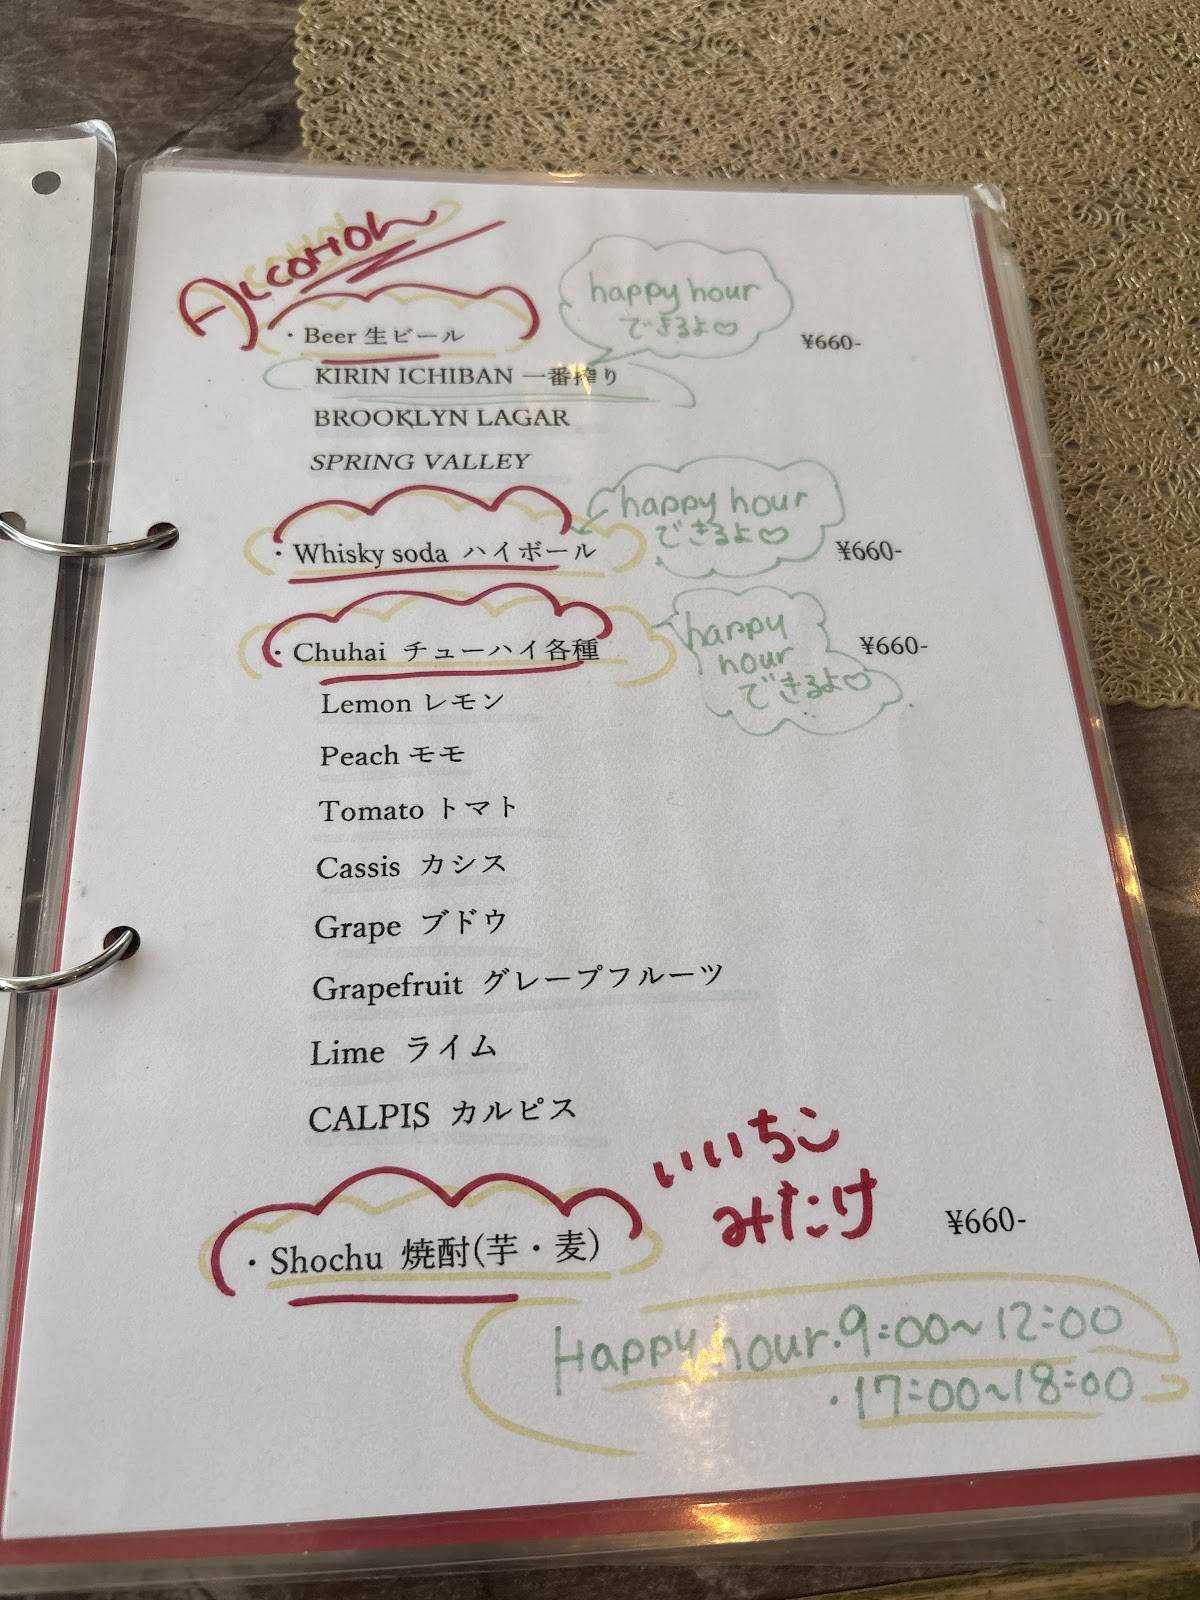 Alcohol
・Beer 生ビール ¥660-
happy hour
できるよ♡
KIRIN ICHIBAN 一番搾り
BROOKLYN LAGAR
SPRING VALLEY
・Whisky soda ハイボール ¥660-
happy hour
できるよ♡
・Chuhai チューハイ各種 ¥660-
happy
hour
できるよ♡
Lemon レモン
Peach モモ
Tomato トマト
Cassis カシス
Grape ブドウ
Grapefruit グレープフルーツ
Lime ライム
CALPIS カルピス
・Shochu 焼酎(芋・麦) ¥660-
いいちこ
みたけ
Happy hour・9:00~12:00
・17:00~18:00